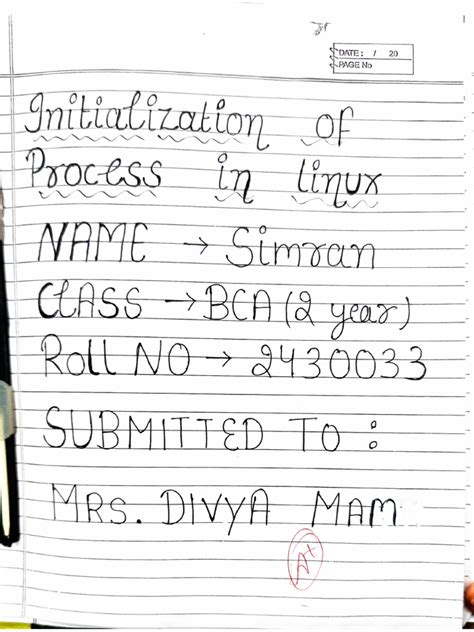 DATE: / 20
PAGE No
Initialization of
Process in linux
NAME → Simran
CLASS → BCA (2 year)
Roll NO → 2430033
SUBMITTED TO :
MRS. DIVYA MAM
A+